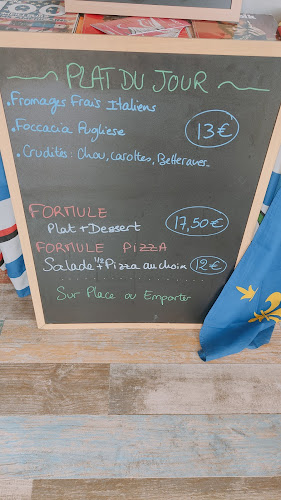 PLAT DU JOUR
• Fromages Frais Italiens
• Foccacia Pugliese
13€
• Crudités : Chou, carottes, Betteraves
FORMULE
Plat + Dessert
17,50€
FORMULE PIZZA
Salade + 1/2 Pizza au choix 12€
Sur Place ou Emporter